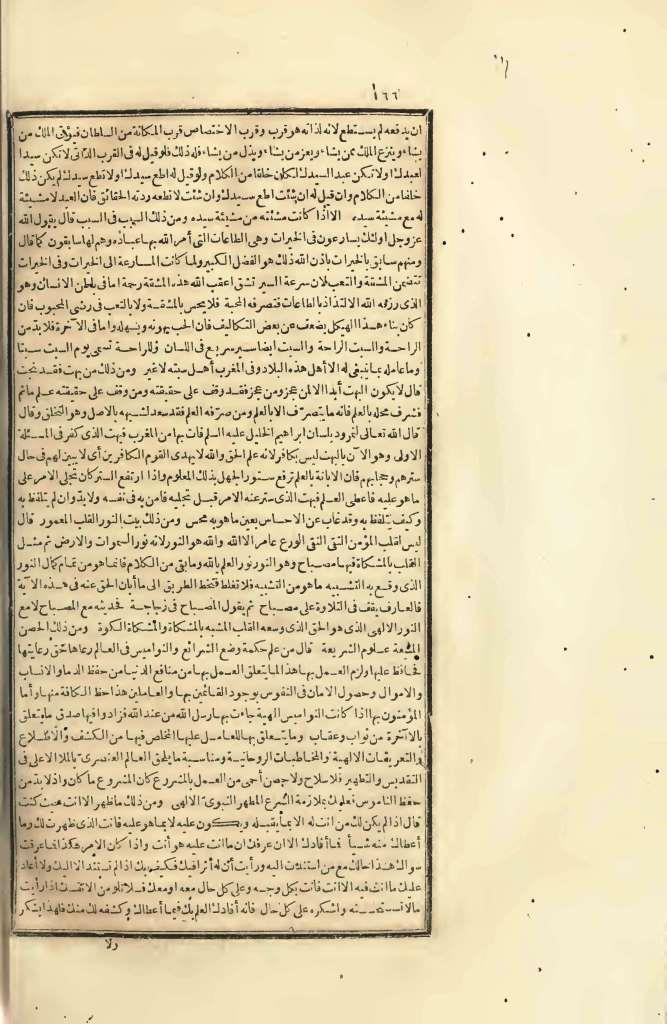 ١٦٦
ان يدفعه لم يستطع لانه لذاته هو قرب وقرب الاختصاص قرب المكانة من السلطان فيؤتى الملك من
يشاء وينزع الملك ممن يشاء ويعز من يشاء ويذل من يشاء فله ذلك فلو قيل له فى القرب الذاتى لا تكن سيدا
لعبدك او لا تكن عبدا لسيدك لكان خلفا من الكلام ولو قيل له اطع سيدك او لا تطع سيدك لم يكن ذلك
خلفا من الكلام وان قيل له ان شئت اطع سيدك وان شئت لا تطعه ردته الحقائق فان العبد لا مشيئة
له مع مشيئة سيده الا اذا كانت مشئته من مشيئة سيده ومن ذلك السبب فى السبب قال يقول الله
عز وجل اولئك يسارعون فى الخيرات وهى الطاعات التى أمر الله بها عباده وهم لها سابقون كما قال
ومنهم سابق بالخيرات باذن الله ذلك هو الفضل الكبير ولما كانت المسارعة الى الخيرات وفى الخيرات
تتضمن المشقة والتعب لان سرعة السير تشق اعقب الله هذه المشقة رحمة اما فى باطن الانسان وهو
الذى رزقه الله الالتذاذ بالطاعات فتصرفه المحبة فلا يحس بالمشقة ولا بالتعب فى رضى المحبوب فان
كان بناء هذا الهيكل يضعف عن بعض التكاليف فان الحب يهونه ويسهله واما فى الآخرة فلا بد من
الراحة والسبت الراحة والسبت ايضا سير سريع فى اللسان وللراحة تسمى يوم السبت سبتا
وما عامله بما ينبغى له الا أهل هذه البلاد وفى المغرب أهل سبته لا غير ومن ذلك من بهت فقد نحت
قال لا يكون البهت أبدا الا لمن عجز ومن عجز فقد وقف على حقيقته ومن وقف على حقيقته علم ما تم
فشرف محله بالعلم فانه ما يتصرف الا بالعلم ومن صرفه العلم فقد سعد لشبهه بالاصل وهو التخلق وقال
قال الله تعالى لنمرود بلسان ابراهيم الخليل عليه السلم فات بها من المغرب فبهت الذى كفر فى المسئلة
الاولى وهو الآن بالبهت ليس بكافر لانه علم الحق والله لا يهدى القوم الكافرين أى لا يبين لهم فى حال
سترهم وحجابهم فان الابانة بالعلم ترفع ستور الجهل بذلك المعلوم واذا ارتفع الستر كان تجلى الامر على
ما هو عليه فاعطى العلم فبهت الذى ستر عنه الامر قبل تجليه فا من به فى نفسه ولا بد وان لم تلفظ به
وكيف يتلفظ به وقد غاب عن الاحساس بعين ما هو به محس ومن ذلك بيت النور القلب المعمور قال
ليس لقلب المؤمن التقى النقى الورع عامر الا الله والله هو النور لانه نور السموات والارض ثم مثل
القلب بالمشكاة فيها مصباح وهو النور نور العلم بالله وما بقى من الكلام فانما هو من تمام كمال النور
الذى وقع به التشبيه ما هو من التشبيه فلا تغلط فتخط الطريق الى ما أبان الحق عنه فى هذه الآية
فالعارف يقف فى التلاوة على مصباح ثم يقول المصباح فى زجاجة فحديثه مع المصباح لا مع
النور الالهى الذى هو الحق الذى وسعه القلب المشبه بالمشكاة والمشكاة الكوة ومن ذلك الحصن
المنيعة علوم الشريعة قال من علم حكمة وضع الشرائع والنواميس فى العالم رعاها حق رعايتها
فحافظ عليها ولزم العمل بها هذا لما يتعلق العمل بها من منافع الدنيا من حفظ الدماء والانساب
والاموال وحصول الامان فى النفوس بوجود القائمين بها والعاملين هذا حظ الكافة منها وأما
المؤمنون بها اذا كانت النواميس الهية جاءت بها رسل الله من عند الله فزادوا فيها صدق ما يتعلق
بالآخرة من ثواب وعقاب وما يتعلق بها للعامل عليها الخاص فيها من الكشف والاطلاع
والتعريفات الالهية والمخاطبات الروحانية ومناسبة ما يلحق العالم العنصرى بالملا الاعلى فى
التقديس والتطهير فلا سلاح ولا حصن أحمى من العمل بالمشروع كان المشروع ما كان واذ لا بد من
حفظ الناموس فعليك بملازمة الشرع المطهر النبوى الالهى ومن ذلك ما ظهر الا انت حيث كنت
قال اذا لم يكن لك من انت له الا بما يقبله ويكون عليه لا بما هو عليه فانت الذى ظهرت لك وما
أعطاك منه شيأ فما أفادك الا ان عرفك ان ما انت عليه هو أنت واذا كان الامر هكذا فما عرفت
سواك هذا حالك مع من استندت اليه ورأيت أن له أثرا فيك فكيف بك اذا لم تستند الا اليك ولا أعاد
عليك ما انت فيه الا انت فانت بكل وجه وعلى كل حال معه أو معك فلا تلومن الا نفسك اذا رأيت
ما لا تستحسنه واشكره على كل حال فانه أفادك العلم بك فيما أعطاك وكشفه لك منك فلهذا يتكر
ولا